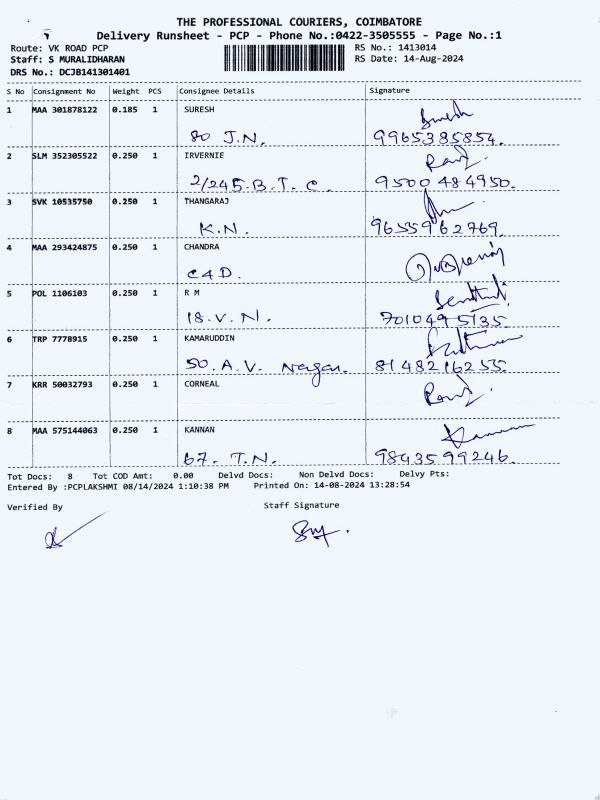 THE PROFESSIONAL COURIERS, COIMBATORE
Delivery Runsheet - PCP - Phone No.:0422-3505555 - Page No.:1
Route: VK ROAD PCP RS No.: 1413014
Staff: S MURALIDHARAN RS Date: 14-Aug-2024
DRS No.: DCJB141301401
S No Consignment No Weight PCS Consignee Details Signature
1 MAA 301878122 0.185 1 SURESH Suresh
80 J.N. 9965385854.
2 SLM 352305522 0.250 1 IRVERNIE
2/245.B.T.C. 9500484950.
3 SVK 10535750 0.250 1 THANGARAJ
K.N. 9655962769.
4 MAA 293424875 0.250 1 CHANDRA
C4D.
5 POL 1106103 0.250 1 R M
18.V.N. 7010495135
6 TRP 7778915 0.250 1 KAMARUDDIN
50.A.V. Nagar. 8148216255.
7 KRR 50032793 0.250 1 CORNEAL
8 MAA 575144063 0.250 1 KANNAN Kannan
67. T.N. 9843599246.
Tot Docs: 8 Tot COD Amt: 0.00 Delvd Docs: Non Delvd Docs: Delvy Pts:
Entered By :PCPLAKSHMI 08/14/2024 1:10:38 PM Printed On: 14-08-2024 13:28:54
Verified By Staff Signature